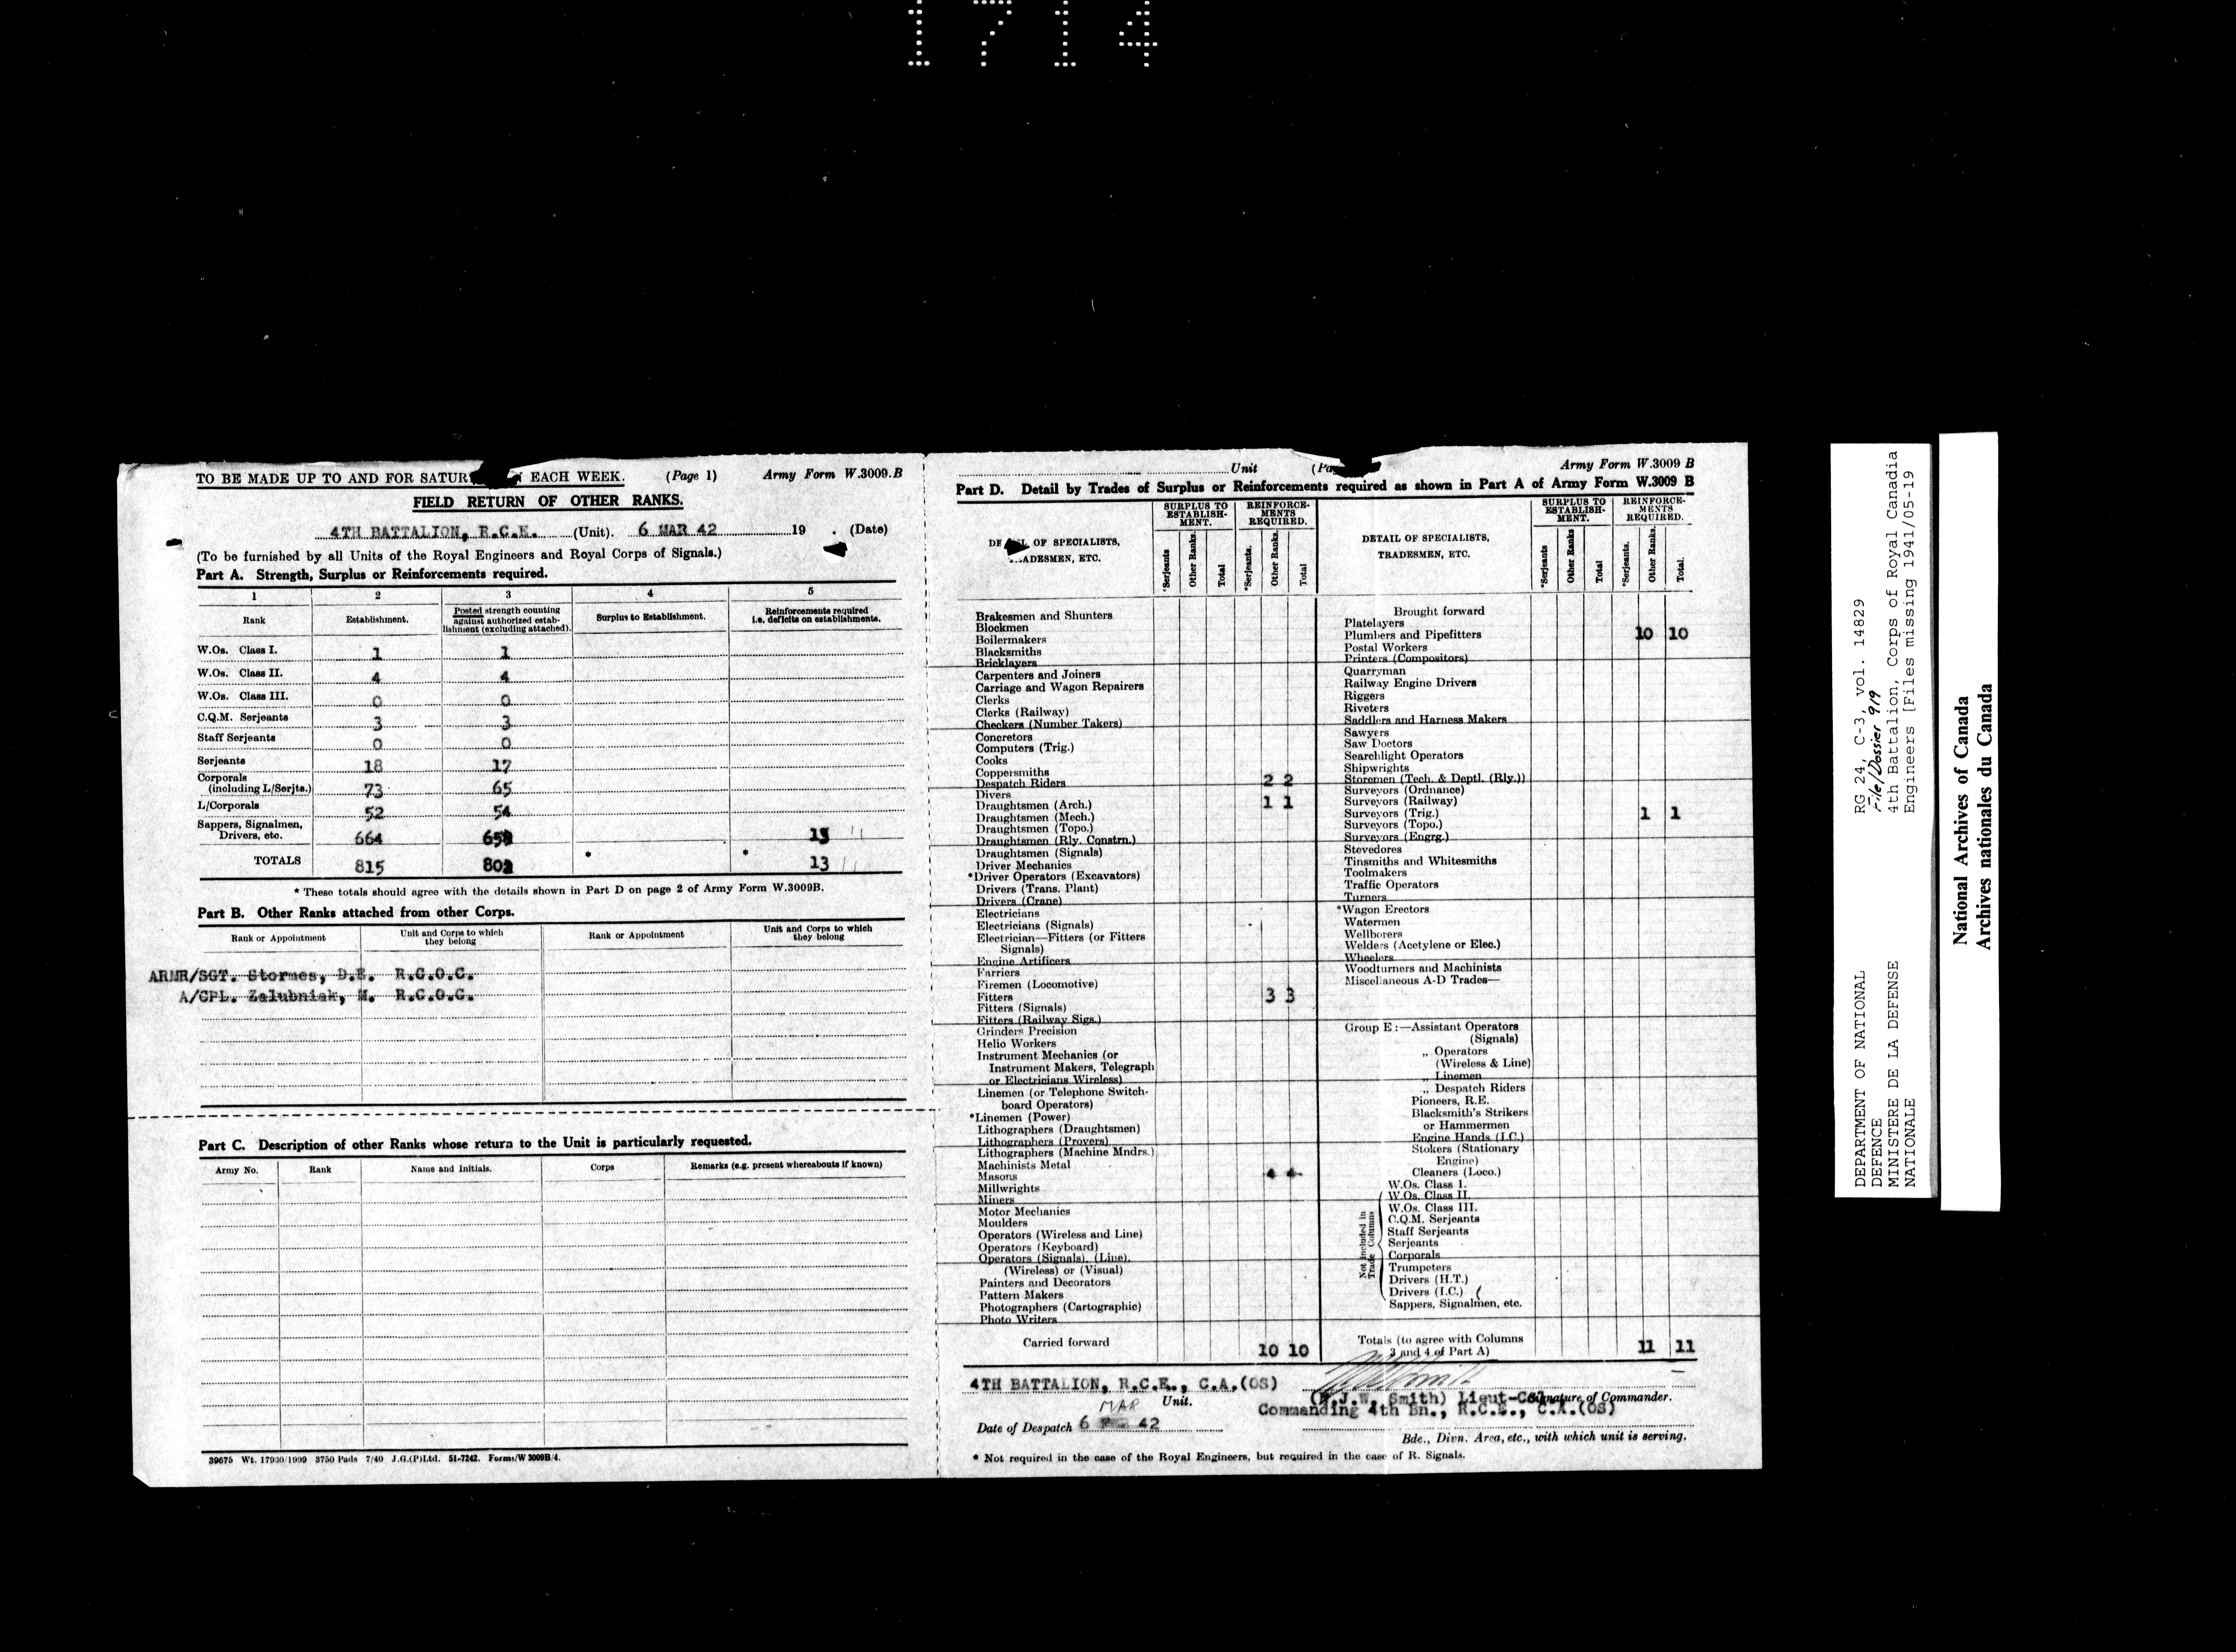 1714
TO BE MADE UP TO AND FOR SATUR EACH WEEK. (Page 1) Army Form W.3009.B
FIELD RETURN OF OTHER RANKS.
4TH BATTALION, R.C.E. (Unit). 6 MAR 42 19 . (Date)
(To be furnished by all Units of the Royal Engineers and Royal Corps of Signals.)
Part A. Strength, Surplus or Reinforcements required.
1 2 3 4 5
Rank Establishment. Posted strength counting against authorized estab-lishment (excluding attached). Surplus to Establishment. Reinforcements required i.e. deficits on establishments.
W.Os. Class I. 1 1
W.Os. Class II. 4 4
W.Os. Class III. 0 0
C.Q.M. Serjeants 3 3
Staff Serjeants 0 0
Serjeants 18 17
Corporals
(including L/Serjts.) 73 65
L/Corporals 52 54
Sappers, Signalmen,
Drivers, etc. 664
TOTALS 815 802 * * 13
* These totals should agree with the details shown in Part D on page 2 of Army Form W.3009B.
Part B. Other Ranks attached from other Corps.
Rank or Appointment Unit and Corps to which they belong Rank or Appointment Unit and Corps to which they belong
ARMR/SGT. Stormes, D.E. R.C.O.C.
A/CPL. Zalubniak, M. R.C.O.C.
Part C. Description of other Ranks whose return to the Unit is particularly requested.
Army No. Rank Name and Initials. Corps Remarks (e.g. present whereabouts if known)
39675 Wt. 17930/1909 3750 Pads 7/40 J.G.(P)Ltd. 51-7242. Forms/W 3009B/4.
Unit Army Form W.3009 B
Part D. Detail by Trades of Surplus or Reinforcements required as shown in Part A of Army Form W.3009 B
OF SPECIALISTS,
ADESMEN, ETC.
SURPLUS TO ESTABLISH-MENT.
REINFORCE-MENTS REQUIRED.
*Serjeants Other Ranks. Total *Serjeants. Other Ranks. Total
Brakesmen and Shunters
Blockmen
Boilermakers
Blacksmiths
Bricklayers
Carpenters and Joiners
Carriage and Wagon Repairers
Clerks
Clerks (Railway)
Checkers (Number Takers)
Concretors
Computers (Trig.)
Cooks
Coppersmiths
Despatch Riders 2 2
Divers
Draughtsmen (Arch.) 1 1
Draughtsmen (Mech.)
Draughtsmen (Topo.)
Draughtsmen (Rly. Constrn.)
Draughtsmen (Signals)
Driver Mechanics
*Driver Operators (Excavators)
Drivers (Trans. Plant)
Drivers (Crane)
Electricians
Electricians (Signals)
Electrician—Fitters (or Fitters
Signals)
Engine Artificers
Farriers
Firemen (Locomotive)
Fitters 3 3
Fitters (Signals)
Fitters (Railway Sigs.)
Grinders Precision
Helio Workers
Instrument Mechanics (or
Instrument Makers, Telegraph
or Electricians Wireless)
Linemen (or Telephone Switch-
board Operators)
*Linemen (Power)
Lithographers (Draughtsmen)
Lithographers (Provers)
Lithographers (Machine Mndrs.)
Machinists Metal
Masons 4 4
Millwrights
Miners
Motor Mechanics
Moulders
Operators (Wireless and Line)
Operators (Keyboard)
Operators (Signals), (Line),
(Wireless) or (Visual)
Painters and Decorators
Pattern Makers
Photographers (Cartographic)
Photo Writers
Carried forward 10 10
DETAIL OF SPECIALISTS,
TRADESMEN, ETC.
SURPLUS TO ESTABLISH-MENT.
REINFORCE-MENTS REQUIRED.
*Serjeants Other Ranks Total *Serjeants. Other Ranks. Total.
Brought forward
Platelayers
Plumbers and Pipefitters 10 10
Postal Workers
Printers (Compositors)
Quarryman
Railway Engine Drivers
Riggers
Riveters
Saddlers and Harness Makers
Sawyers
Saw Doctors
Searchlight Operators
Shipwrights
Storemen (Tech. & Deptl. (Rly.))
Surveyors (Ordnance)
Surveyors (Railway)
Surveyors (Trig.) 1 1
Surveyors (Topo.)
Surveyors (Engrg.)
Stevedores
Tinsmiths and Whitesmiths
Toolmakers
Traffic Operators
Turners
*Wagon Erectors
Watermen
Wellborers
Welders (Acetylene or Elec.)
Wheelers
Woodturners and Machinists
Miscellaneous A-D Trades—
Group E :—Assistant Operators
(Signals)
„ Operators
(Wireless & Line)
„ Linemen
„ Despatch Riders
Pioneers, R.E.
Blacksmith's Strikers
or Hammermen
Engine Hands (I.C.)
Stokers (Stationary
Engine)
Cleaners (Loco.)
Not included in Trade Columns
W.Os. Class I.
W.Os. Class II.
W.Os. Class III.
C.Q.M. Serjeants
Staff Serjeants
Serjeants
Corporals
Trumpeters
Drivers (H.T.)
Drivers (I.C.)
Sappers, Signalmen, etc.
Totals (to agree with Columns
3 and 4 of Part A) 11 11
4TH BATTALION, R.C.E., C.A.(OS)
Unit.
Smith) Signature of Commander.
Commanding 4th Bn., R.C.E., C.A.(OS)
MAR
Date of Despatch 6 42
Bde., Divn. Area, etc., with which unit is serving.
* Not required in the case of the Royal Engineers, but required in the case of R. Signals.
DEPARTMENT OF NATIONAL RG 24, C-3, vol. 14829
DEFENCE File/Dossier 919
MINISTERE DE LA DEFENSE 4th Battalion, Corps of Royal Canadia
NATIONALE Engineers [Files missing 1941/05-19
National Archives of Canada
Archives nationales du Canada